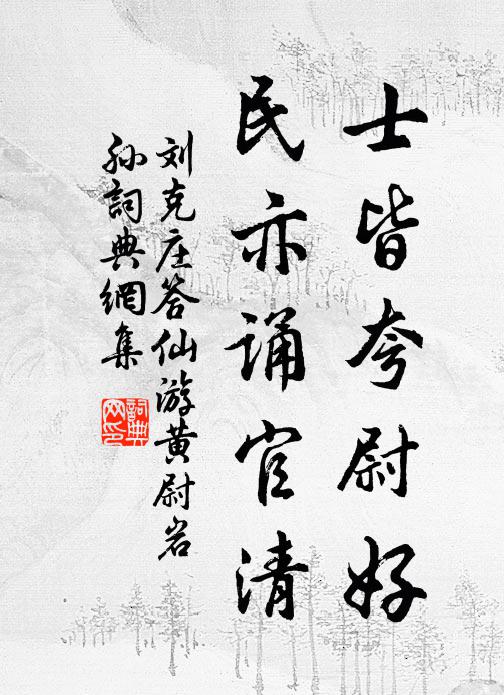 士皆夸尉好
民亦诵官清
刘克庄答仙游黄尉岩
孙詞典網集
詞典
网印